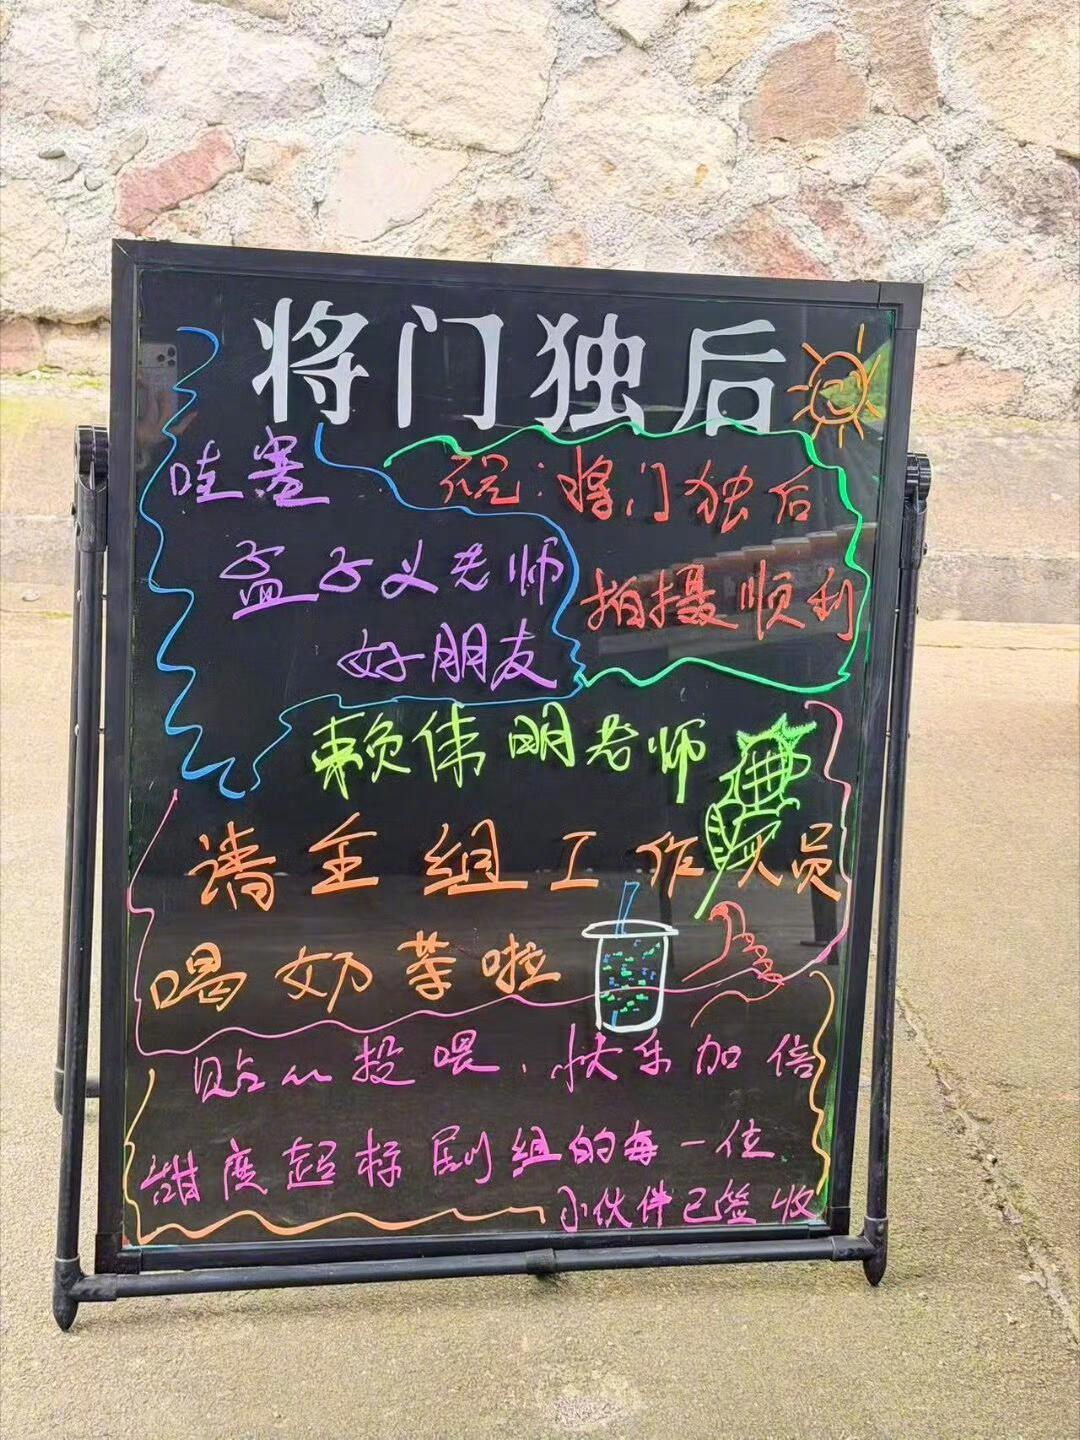 将门独后
哇塞
孟子义老师
好朋友
祝:将门独后
拍摄顺利
赖伟明老师
请全组工作人员
喝奶茶啦
贴心投喂,快乐加倍
甜度超标剧组的每一位
小伙伴已签收